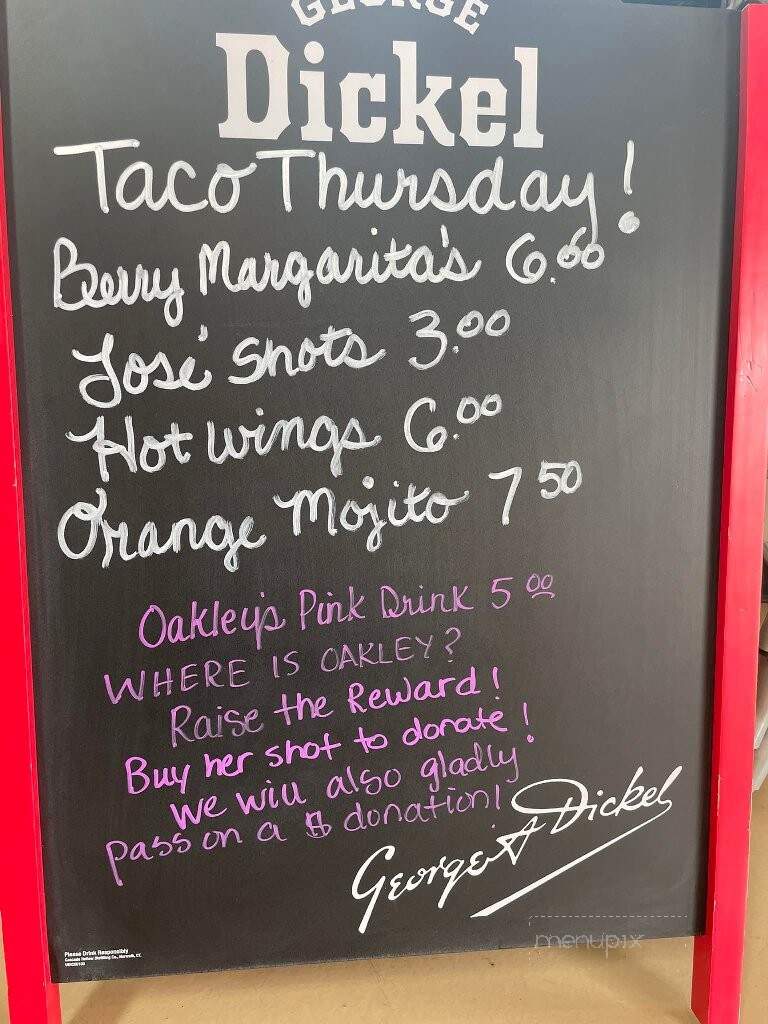 GEORGE
Dickel
Taco Thursday!
Berry Margarita's 6.00
José Shots 3.00
Hot Wings 6.00
Orange Mojito 7 50
Oakley's Pink Drink 5 00
WHERE IS OAKLEY?
Raise the Reward!
Buy her shot to donate!
We will also gladly
pass on a $ donation!
George A Dickel
Please Drink Responsibly
menupix